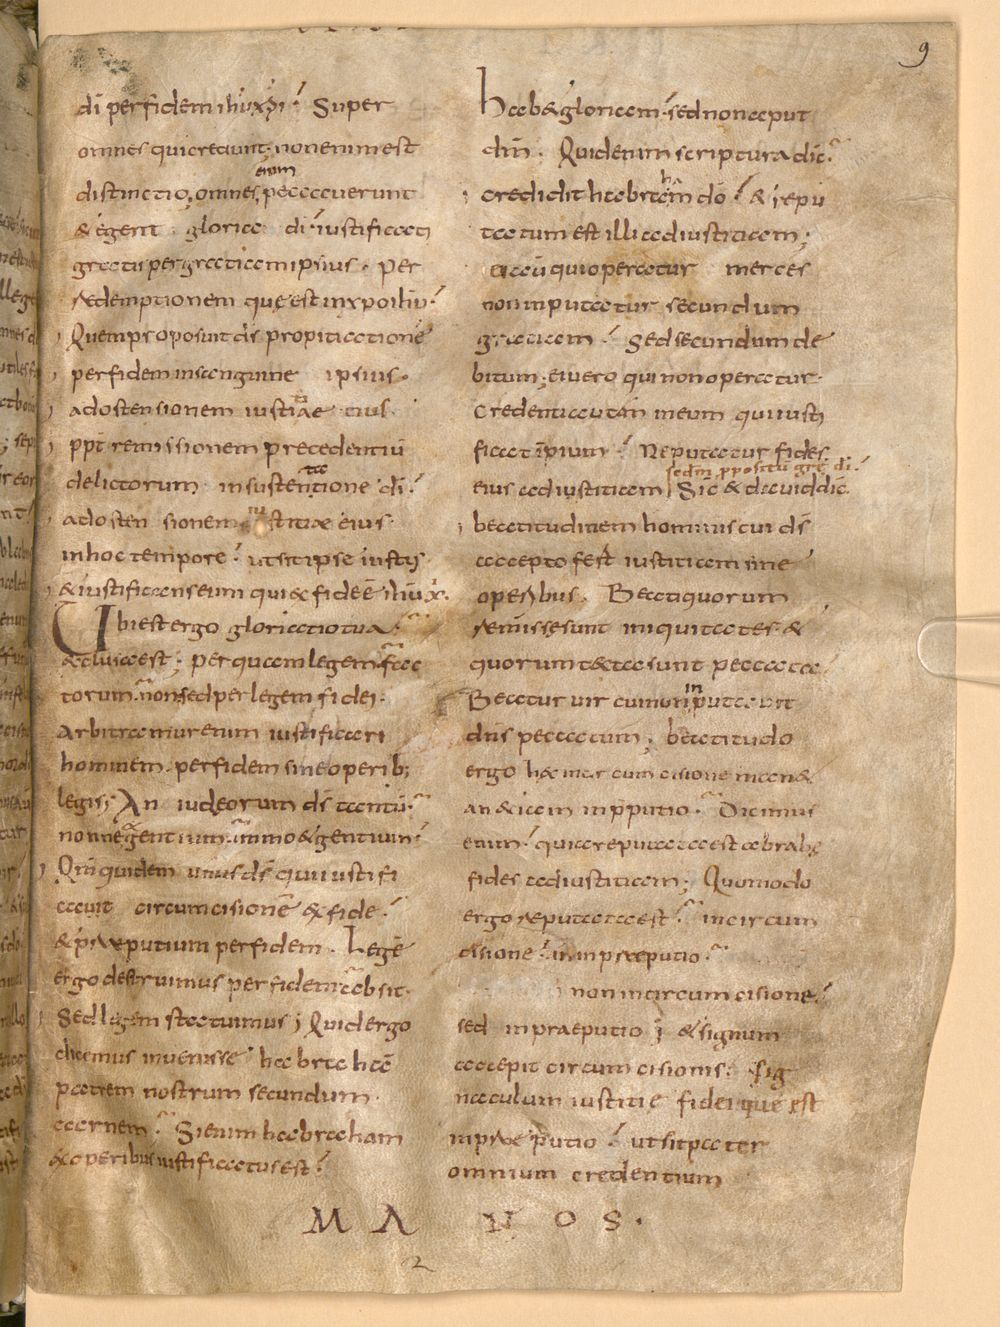 9
dī per fidem ihū xp̄i; Super
omnes qui credunt; non enim est
distinctio, omnes enim peccaverunt
& egent gloriae dī; iustificati
gratis per gratiam ipsius. Per
redemptionem que est in xpo ihū;
Quem proposuit dS propitiationē
per fidem in sanguine ipsius.
ad ostensionem iustitiae eius.
ppt remissionem precedentiū
delictorum in sustentatione dī;
ad ostensionem iustitiae eius.
in hoc tempore; ut sit ipse iustus
& iustificans eum qui ex fide ē ihū x̄.
Ubi est ergo gloriatio tua.
exclusa est; per quam legem fac
torum. non sed per legem fidei.
Arbitramur enim iustificari
hominem. per fidem sine operib;
legis; An iudeorum dS tantū.
nonne & gentium. immo & gentium;
Qnm quidem unus dS qui iustifi
cavit circumcisionē ex fide;
& preputium per fidem. Legē
ergo destruimus per fidem absit.
Sed legem statuimus; Quid ergo
dicemus invenisse habraham
patrem nostrum secundum
carnem. Si enim habraham
ex operibus iustificatus est;
hab& gloriam; sed non aput
dm̄. Quid enim scriptura dic̄.
credidit habraham dō; & repu
tatum est illi ad iustitiam;
ei autē qui operatur merces
non imputatur secundum
gratiam; sed secundum de
bitum; ei vero qui non operatur.
credenti autem in eum qui iusti
ficat impium; Reputatur fides
sedm ppositū grē dī.
eius ad iustitiam Sic & david dic̄.
beatitudinem hominis cui dS
accepto fert iustitiam sine
operibus. Beati quorum
remisse sunt iniquitates &
quorum tecta sunt peccata.
Beatus vir cui non inputavit
dnS peccatum; beatitudo
ergo haec in circumcisione man&
an & iam in preputio. Dicimus
enim; quia reputata est abrahe
fides ad iustitiam; Quomodo
ergo reputata est; in circum
cisione; in in preputio.
non in circumcisione;
sed in praeputio; & signum
accepit circumcisionis; sig
naculum iustitie fidei que est
in preputio; ut sit pater
omnium credentium
MA NOS.
2